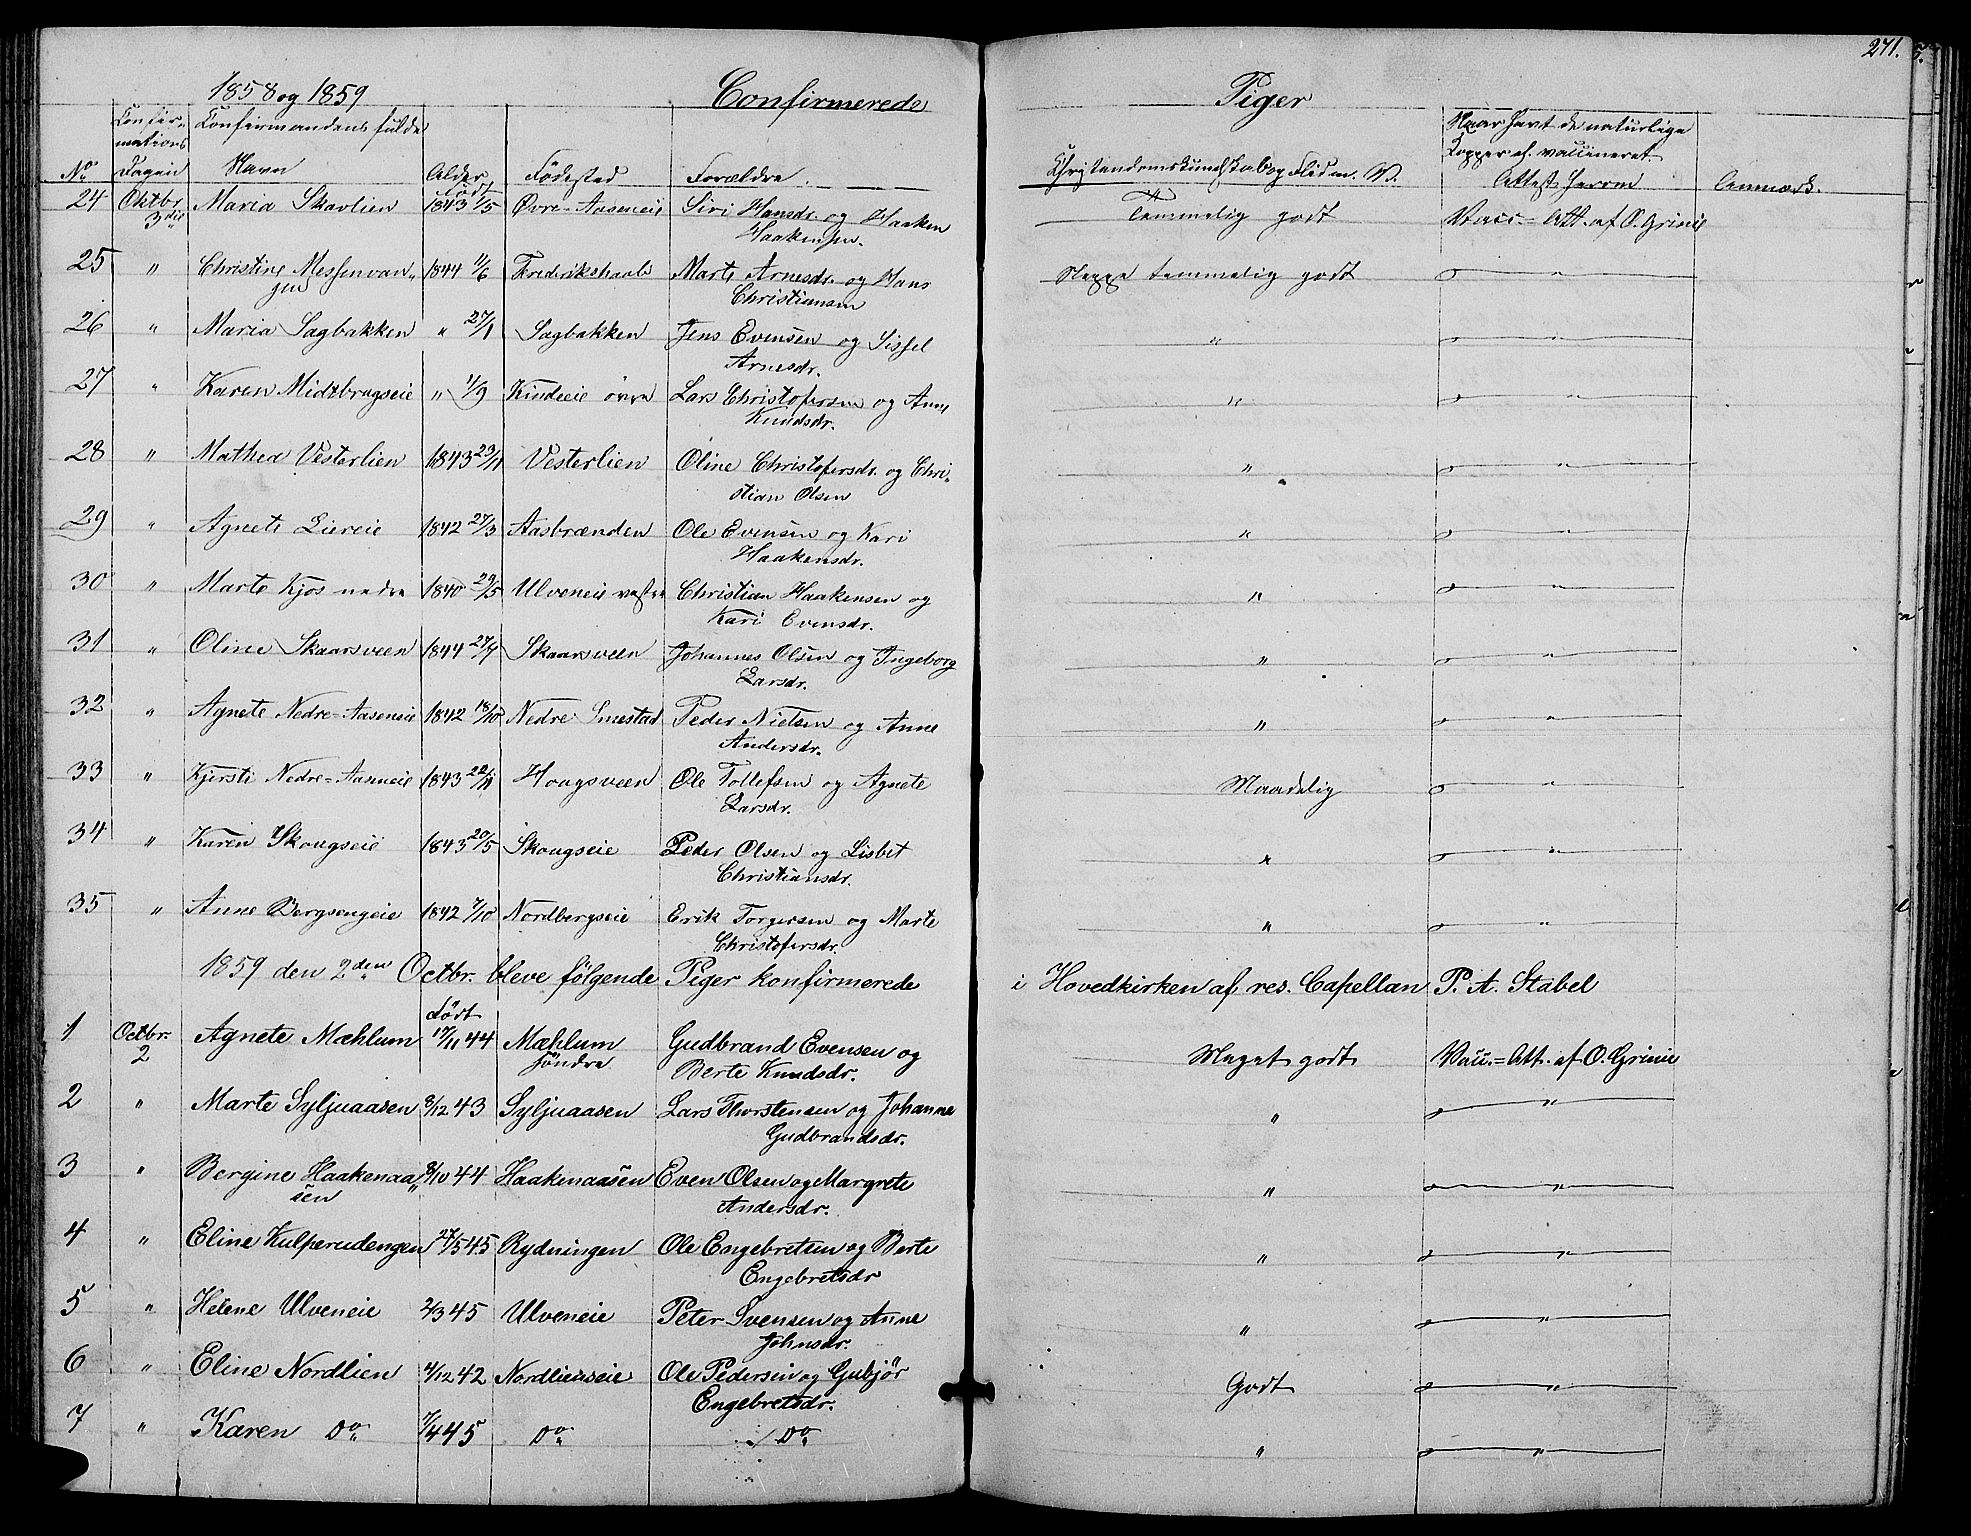 271.
1858 og 1859 Confirmerede Piger
No Confirmations Dagen Confirmandens fulde Navn Alder Födested Forældre Christendomskundskab og Flid m. V. Naar havt de naturlige Kopper el. vaccineret Attest herom Anmærk.
24 Oktbr. 3die Maria Skavlien Födt 1843 1/5 Øvre-Aaseneie Siri Hansdr. og Haaken Temmelig godt Vacc.=Att. af O. Grinie
Haakensen.
25 " Christine Messenvan- 1844 11/6 Frederikshaab Marte Arnesdr. og Hans Megge temmelig godt "
gen Christiansen
26 " Maria Sagbakken " 27/1 Sagbakken Jens Evensen og Sissel " "
Arnesdr.
27 " Karen Midtbrugseie " 1/9 Kindeeie övre Lars Christofersen og Anne " "
Knudsdr.
28 " Mathea Vesterlien 1843 23/11 Vesterlien Oline Christofersdr. og Chri- " "
stian Olsen
29 " Agnete Liereie 1842 27/3 Aasbrænden Ole Evensen og Kari " "
Haakensdr.
30 " Marte Kjos nedre 1840 29/5 Ulveneie vestre Christian Haakensen og " "
Kari Evensdr.
31 " Oline Skaarsveen 1844 27/4 Skaarsveen Johannes Olsen og Ingeborg " "
Larsdr.
32 " Agnete Nedre-Aaseneie 1842 18/10 Nedre Smestad Peder Nielsen og Anne " "
Andersdr.
33 " Kjersti Nedre-Aaseneie 1843 22/11 Hougsveen Ole Tollefsen og Agnete Maadelig "
Larsdr.
34 " Karen Skougseie 1843 20/5 Skougseie Peder Olsen og Lisbet " "
Christiansdr.
35 " Anne Bergsengeie 1842 7/10 Nordbergseie Erik Torgersen og Marte " "
Christofersdr.
1859 den 2den Octbr. bleve följgende Piger konfirmerede i Hovedkirken af res. Capellan P. A. Stabel
1 Octbr. 2 Agnete Mæhlum födt 17/11 44 Mæhlum söndre Gudbrand Evensen og Meget godt Vacc.=Att. af O. Grinie
Berte Knudsdr.
2 " Marte Syljuaasen 8/12 43 Syljuaasen Lars Thorstensen og Johanne " "
Gudbrandsdr.
3 " Bergine Haakenaa- 8/10 44 Haakenaasen Even Olsen og Margrete " "
sen Andersdr.
4 " Eline Kulperudengen 27/5 45 Rydningen Ole Engebretsen og Berte " "
Engebretsdr
5 " Helene Ulveneie 2/3 45 Ulveneie Peter Svensen og Anne " "
Johnsdr.
6 " Eline Nordlien 4/12 42 Nordlienseie Ole Pedersen og Gubjör Godt "
Engebretsdr.
7 " Karen Do 7/4 45 Do Do " "